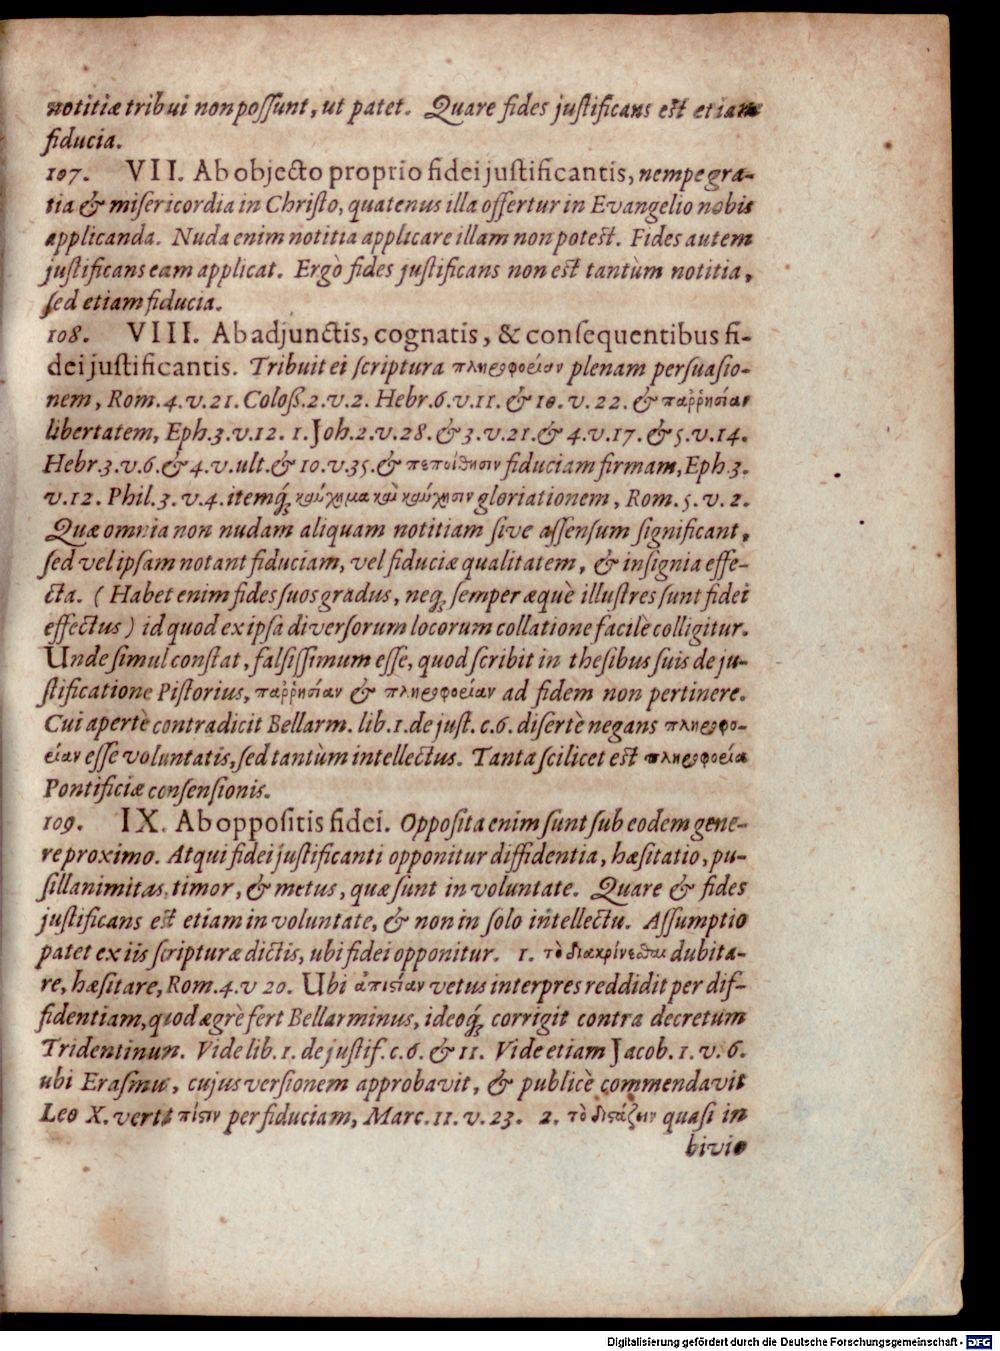 notitiæ tribui non poſſunt, ut patet. Quare fides juſtificans eſt etiam
fiducia.
107. VII. Ab objecto proprio fidei juſtificantis, nempe gra-
tia & miſericordia in Chriſto, quatenus illa offertur in Evangelio nobis
applicanda. Nuda enim notitia applicare illam non poteſt. Fides autem
juſtificans eam applicat. Ergò fides juſtificans non eſt tantùm notitia,
ſed etiam fiducia.
108. VIII. Ab adjunctis, cognatis, & conſequentibus fi-
dei juſtificantis. Tribuit ei ſcriptura πληροφορίαν plenam perſuaſio-
nem, Rom. 4. v. 21. Coloß. 2. v. 2. Hebr. 6. v. 11. & 10. v. 22. & παῤῥησίαν
libertatem, Eph. 3. v. 12. 1. Joh. 2. v. 28. & 3. v. 21. & 4. v. 17. & 5. v. 14.
Hebr. 3. v. 6. & 4. v. ult. & 10. v. 35. & πεποίθησιν fiduciam firmam, Eph. 3.
v. 12. Phil. 3. v. 4. itemq́; καύχημα καὶ καύχησιν gloriationem, Rom. 5. v. 2.
Quæ omnia non nudam aliquam notitiam ſive aſſenſum ſignificant,
ſed vel ipſam notant fiduciam, vel fiduciæ qualitatem, & inſignia effe-
cta. (Habet enim fides ſuos gradus, neq; ſemper æquè illuſtres ſunt fidei
effectus) id quod ex ipſa diverſorum locorum collatione facilè colligitur.
Unde ſimul conſtat, falſiſſimum eſſe, quod ſcribit in theſibus ſuis de ju-
ſtificatione Piſtorius, παῤῥησίαν & πληροφορίαν ad fidem non pertinere.
Cui apertè contradicit Bellarm. lib. 1. de juſt. c. 6. diſertè negans πληροφο-
ρίαν eſſe voluntatis, ſed tantùm intellectus. Tanta ſcilicet eſt πληροφορία
Pontificiæ conſenſionis.
109. IX. Ab oppoſitis fidei. Oppoſita enim ſunt ſub eodem gene-
re proximo. Atqui fidei juſtificanti opponitur diffidentia, hæſitatio, pu-
ſillanimitas, timor, & metus, quæ ſunt in voluntate. Quare & fides
juſtificans eſt etiam in voluntate, & non in ſolo intellectu. Aſſumptio
patet ex iis ſcripturæ dictis, ubi fidei opponitur. 1. τὸ διακρίνεσθαι dubita-
re, hæſitare, Rom. 4. v 20. Ubi ἀπιστίαν vetus interpres reddidit per dif-
fidentiam, quod ægrè fert Bellarminus, ideoq́; corrigit contra decretum
Tridentinum. Vide lib. 1. de juſtif. c. 6. & 11. Vide etiam Jacob. 1. v. 6.
ubi Eraſmus, cujus verſionem approbavit, & publicè commendavit
Leo X. vertit πίστιν per fiduciam, Marc. 11. v. 23. 2. τὸ διστάζειν quaſi in
bivio
Digitalisierung gefördert durch die Deutsche Forschungsgemeinschaft - DFG